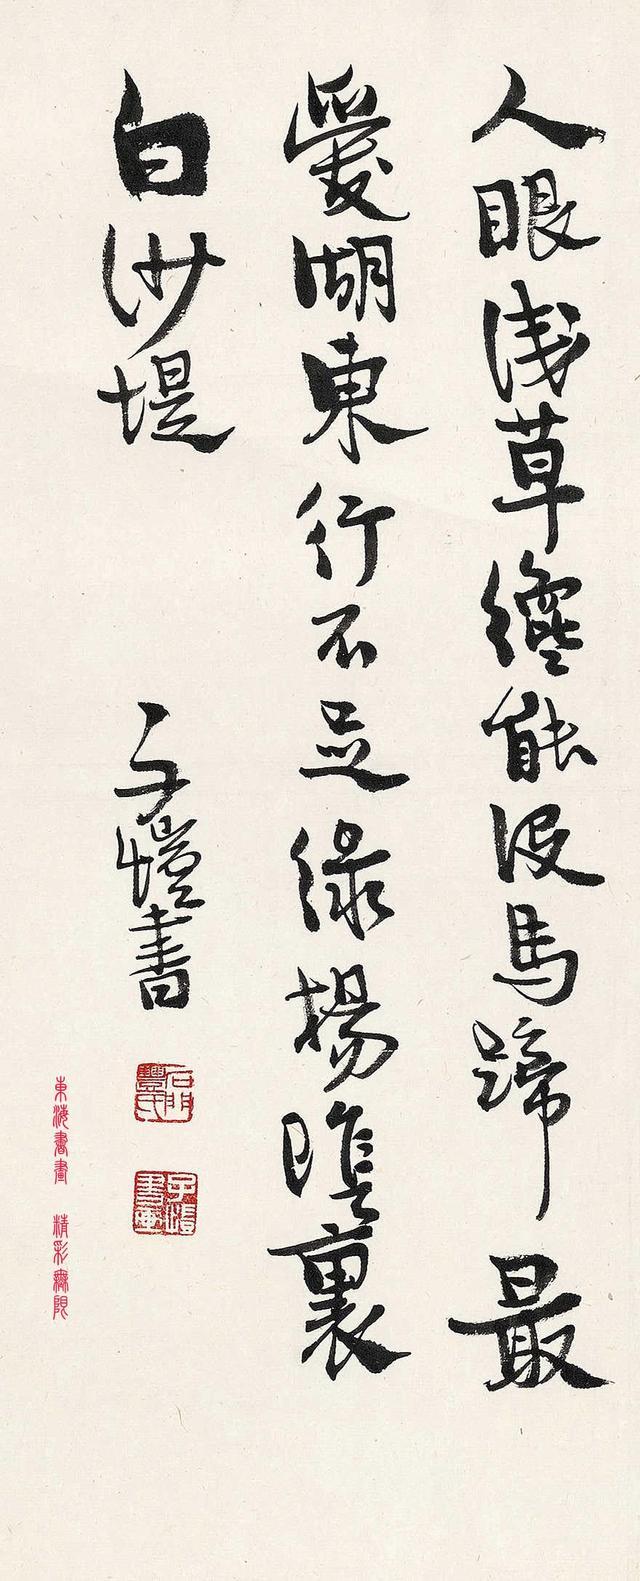 人眼浅草纔能沒馬蹄最
愛湖東行不足綠楊陰裏
白沙堤
子愷書
石門豐氏
子愷書畫
東海書畫 精彩無限